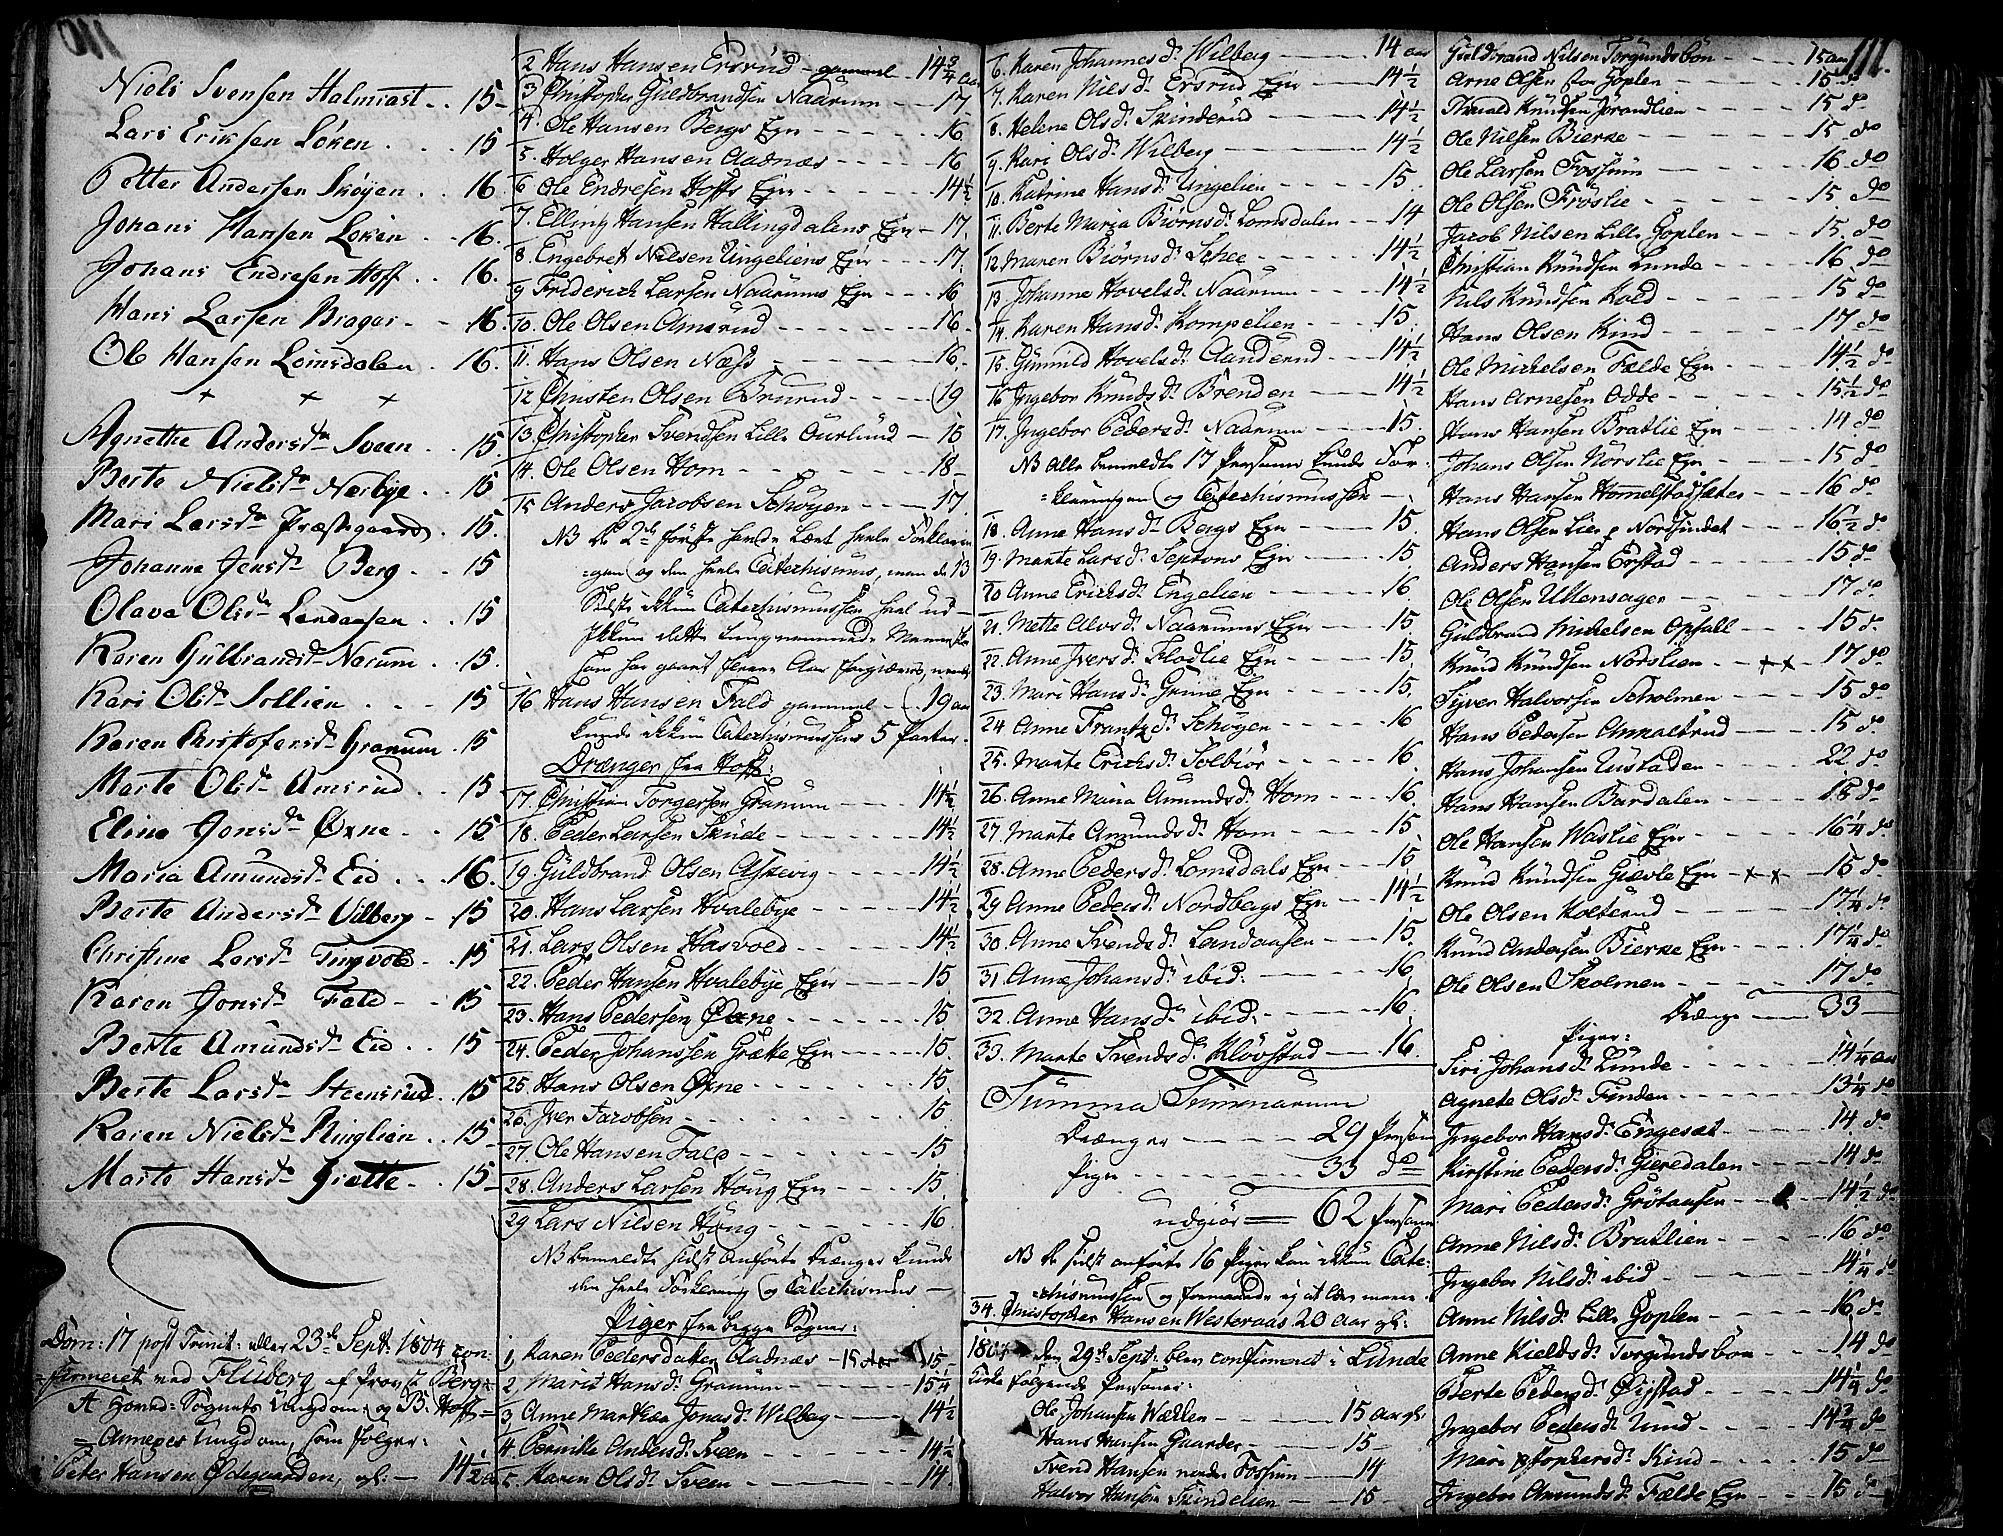 110
Niels Svensen Halmrast 15
Lars Eriksen Løken 15
Petter Andersen Skøyen 16
Johans Hansen Løken 16
Johans Endresen Hoff 16
Hans Larsen Bragar 16
Ole Hansen Lomsdalen 16
+ + +
Agnethe Andersda Sveen 15
Berte Nielsda Nerbye 15
Mari Larsda Præstegaard 15
Johanne Jensda Berg 15
Olava Olsda Landaasen 15
Karen Gulbrandsda Narum 15
Kari Olsda Sollien 15
Karen Christofersda Granum 15
Marte Olsda Amsrud 15
Eline Jonsda Øxne 15
Maria Amundsda Eid 16
Berte Andersda Vilberg 15
Christine Larsda Tingvold 15
Karen Jonsda Fald 15
Berte Amundsda Eid 15
Berte Larsda Steensrud 15
Karen Nielsda Ringlien 15
Marte Hansda Grøtte 15
Dom: 17 post Trinit: eller 23de Sept: 1804 con-
firmeret ved Fluberg af Provst Berg
A Hoved-Sognets Ungdom, og B. Hoffs
Annexes Ungdom, som følger:
1 Peter Hansen Ødegaarden, gl: 14½
2 Hans Hansen Ersrud gammel 14¾ aar
3 Christopher Guldbrandsen Naarum 17
4. Ole Hansen Bergs Egn 16
5. Holger Hansen Aadnæs 16
6 Ole Endresen Hoffs Egn 14½
7. Elling Hansen Hallingdalens Egn 17
8. Engebret Nilsen Ungeliens Egn 17
9 Friderich Larsen Naarums Egn 16
10. Ole Olsen Amsrud 16
11. Hans Olsen Næss 16
12 Christen Olsen Brurud 19
13. Christopher Svendsen Lille Aurlund 15
14. Ole Olsen Hom 18
15 Anders Jacobsen Schøyen 17
NB De 2de første havde lært heele Forklarin-
gen og den heele Catechismus, men de 13
sidste ikkun Catechismussen heel ud
16 Hans Hansen Fald gammel 19 aar
kunde ikkun Catechismussens 5 Parter.
Drænger fra Hoff:
17. Christian Torgersen Granum 14½
18. Peder Larsen Skude 14½
19 Guldbrand Olsen Askevig 14½
20. Hans Larsen Hvalebye 14½
21. Lars Olsen Hasvold 14½
22. Peder Hansen Hvalebye Egn 15
23. Hans Pedersen Øxne 15
24. Peder Johanssen Grætte Egn 15
25 Hans Olsen Øxne 15
26. Iver Jacobsen 15
27. Ole Hansen Fald 15
28. Anders Larsen Houg Egn 15
29 Lars Nilsen Houg 16
NB bemeldte sidst anførte Drænger kunde
den heele Forklaring og Catechismus
Piger fra begge Sogne:
1 Karen Pedersdatter Aadnæs 15 Aar 15
2. Marit Hansd: Granum 15¼
3. Anne Marthea Jonasd: Wilberg 14½
4. Pernille Andersd: Sveen 14½
5. Karen Olsd: Sveen 14
6. Karen Johannesd: Wilberg 14 aar
7. Karen Nielsd: Ersrud Egn 14½
8. Helene Olsd: Skinderud 14½
9. Kari Olsd: Wilberg 14½
10. Katrine Hansd: Ungelien 15
11. Berte Maria Biørnsd: Lomsdalen 14
12. Maren Biørnsd: Schee 14½
13 Johanne Hovelsd: Naarum 14½
14. Karen Hansd: Kompelien 15
15. Gunnild Hovelsd: Aanderud 14½
16 Ingebor Knudsd: Brenden 14½
17. Ingebor Pedersd: Naarum 15
NB alle bemeldte 17 Personer kunde For-
klaringen og Catechismussen
18. Anne Hansd: Bergs Egn 15
19. Marte Larsd: Septons Egn 15
20 Anne Erichsd: Engelien 16
21. Mette Alvsd: Naarums Egn 15
22. Anne Iversd: Flodlie Egn 15
23. Mari Hansd: Grime Egn 15
24 Anne Frantzd: Schøyen 16
25. Marte Erichsd: Solbiør 16
26. Anne Maria Amundsd: Hom 16
27. Marte Amundsd: Hom 15
28. Anne Pedersd: Lomsdals Egn 15
29 Anne Pedersd: Nordbergs Egn 14½
30. Anne Svendsd: Landaasen 15
31. Anne Johansd: ibid: 16
32. Anne Hansd: ibid: 16
33. Marte Svendsd: Kløvstad 16
Summa Summarum
Drænger 29 Person
Piger 33 do
udgiør 62 Personer
NB De sidst anførte 16 Piger kan ikkun Cate-
chismussen og formaaede ej at lære meere
34. Christopher Hansen Westeraas 20 aar gl:
1804 den 29de Sept: blev confirmeret i Lunde
Kirke følgende Personer:
Ole Johansen Wællen 15 aar gl:
Hans Hansen Gaarder 15
Svend Hansen nordre Fossum 14
Halvor Hansen Skindelien 15
111.
Guldbrand Nilsen Torgundsbøn 15 aar
Arne Olsen stor Goplen 15 do
Tharald Knudsen Jørandlien 15 do
Ole Nilsen Bierke 15 do
Ole Larsen Fossum 16 do
Ole Olsen Frøslie 15 do
Jacob Nilsen Lille Goplen 15 do
Christian Knudsen Lunde 16 do
Nils Knudsen Kold 15 do
Hans Olsen Kind 17 do
Ole Michelsen Fælde Egn 14½ do
Hans Arnesen Odde 15½ do
Hans Hansen Bratlie Egn 14 do
Johans Olsen Nørslie Egn 15 do
Hans Hansen Hommelstadsæter 16 do
Hans Olsen Lie p Nordsindet 16½ do
Anders Hansen Erstad 15 do
Ole Olsen Ultensager 17 do
Guldbrand Michelsen Opsall 15 do
Knud Knudsen Nørslien ++ 17 do
Syver Halvorsen Skolmen 15 do
Hans Pedersen Annolstrud 15 do
Hans Johansen Nustaden 22 do
Hans Hansen Bardalen 18 do
Ole Hansen Waslie Egn 16¼ do
Knud Knudsen Giævle Egn ++ 15 do
Ole Olsen Kolterud 17¼ do
Knud Andersen Bierke Egn 17¼ do
Ole Olsen Skolmen 17 do
Drænge 33
Piger:
Siri Johansd: Lunde 14¼ aar
Agnete Olsd: Finden 13¼ do
Ingebor Hansd: Engesæt 14 do
Kirstine Pedersd: Gieredalen 14 do
Mari Pedersd: Grøtaasen 14½ do
Anne Nilsd: Bratlien 16 do
Ingebor Nilsd: ibid 14¼ do
Anne Nilsd: Lille Goplen 16 do
Anne Kieldsd: Torgundsbøn 14 do
Berte Pedersd: Øistad 14¼ do
Ingebor Pedersd: Lund 14¾ do
Mari Xstophersd: Kind 15 do
Ingebor Amundsd: Fælde Egn 15 do